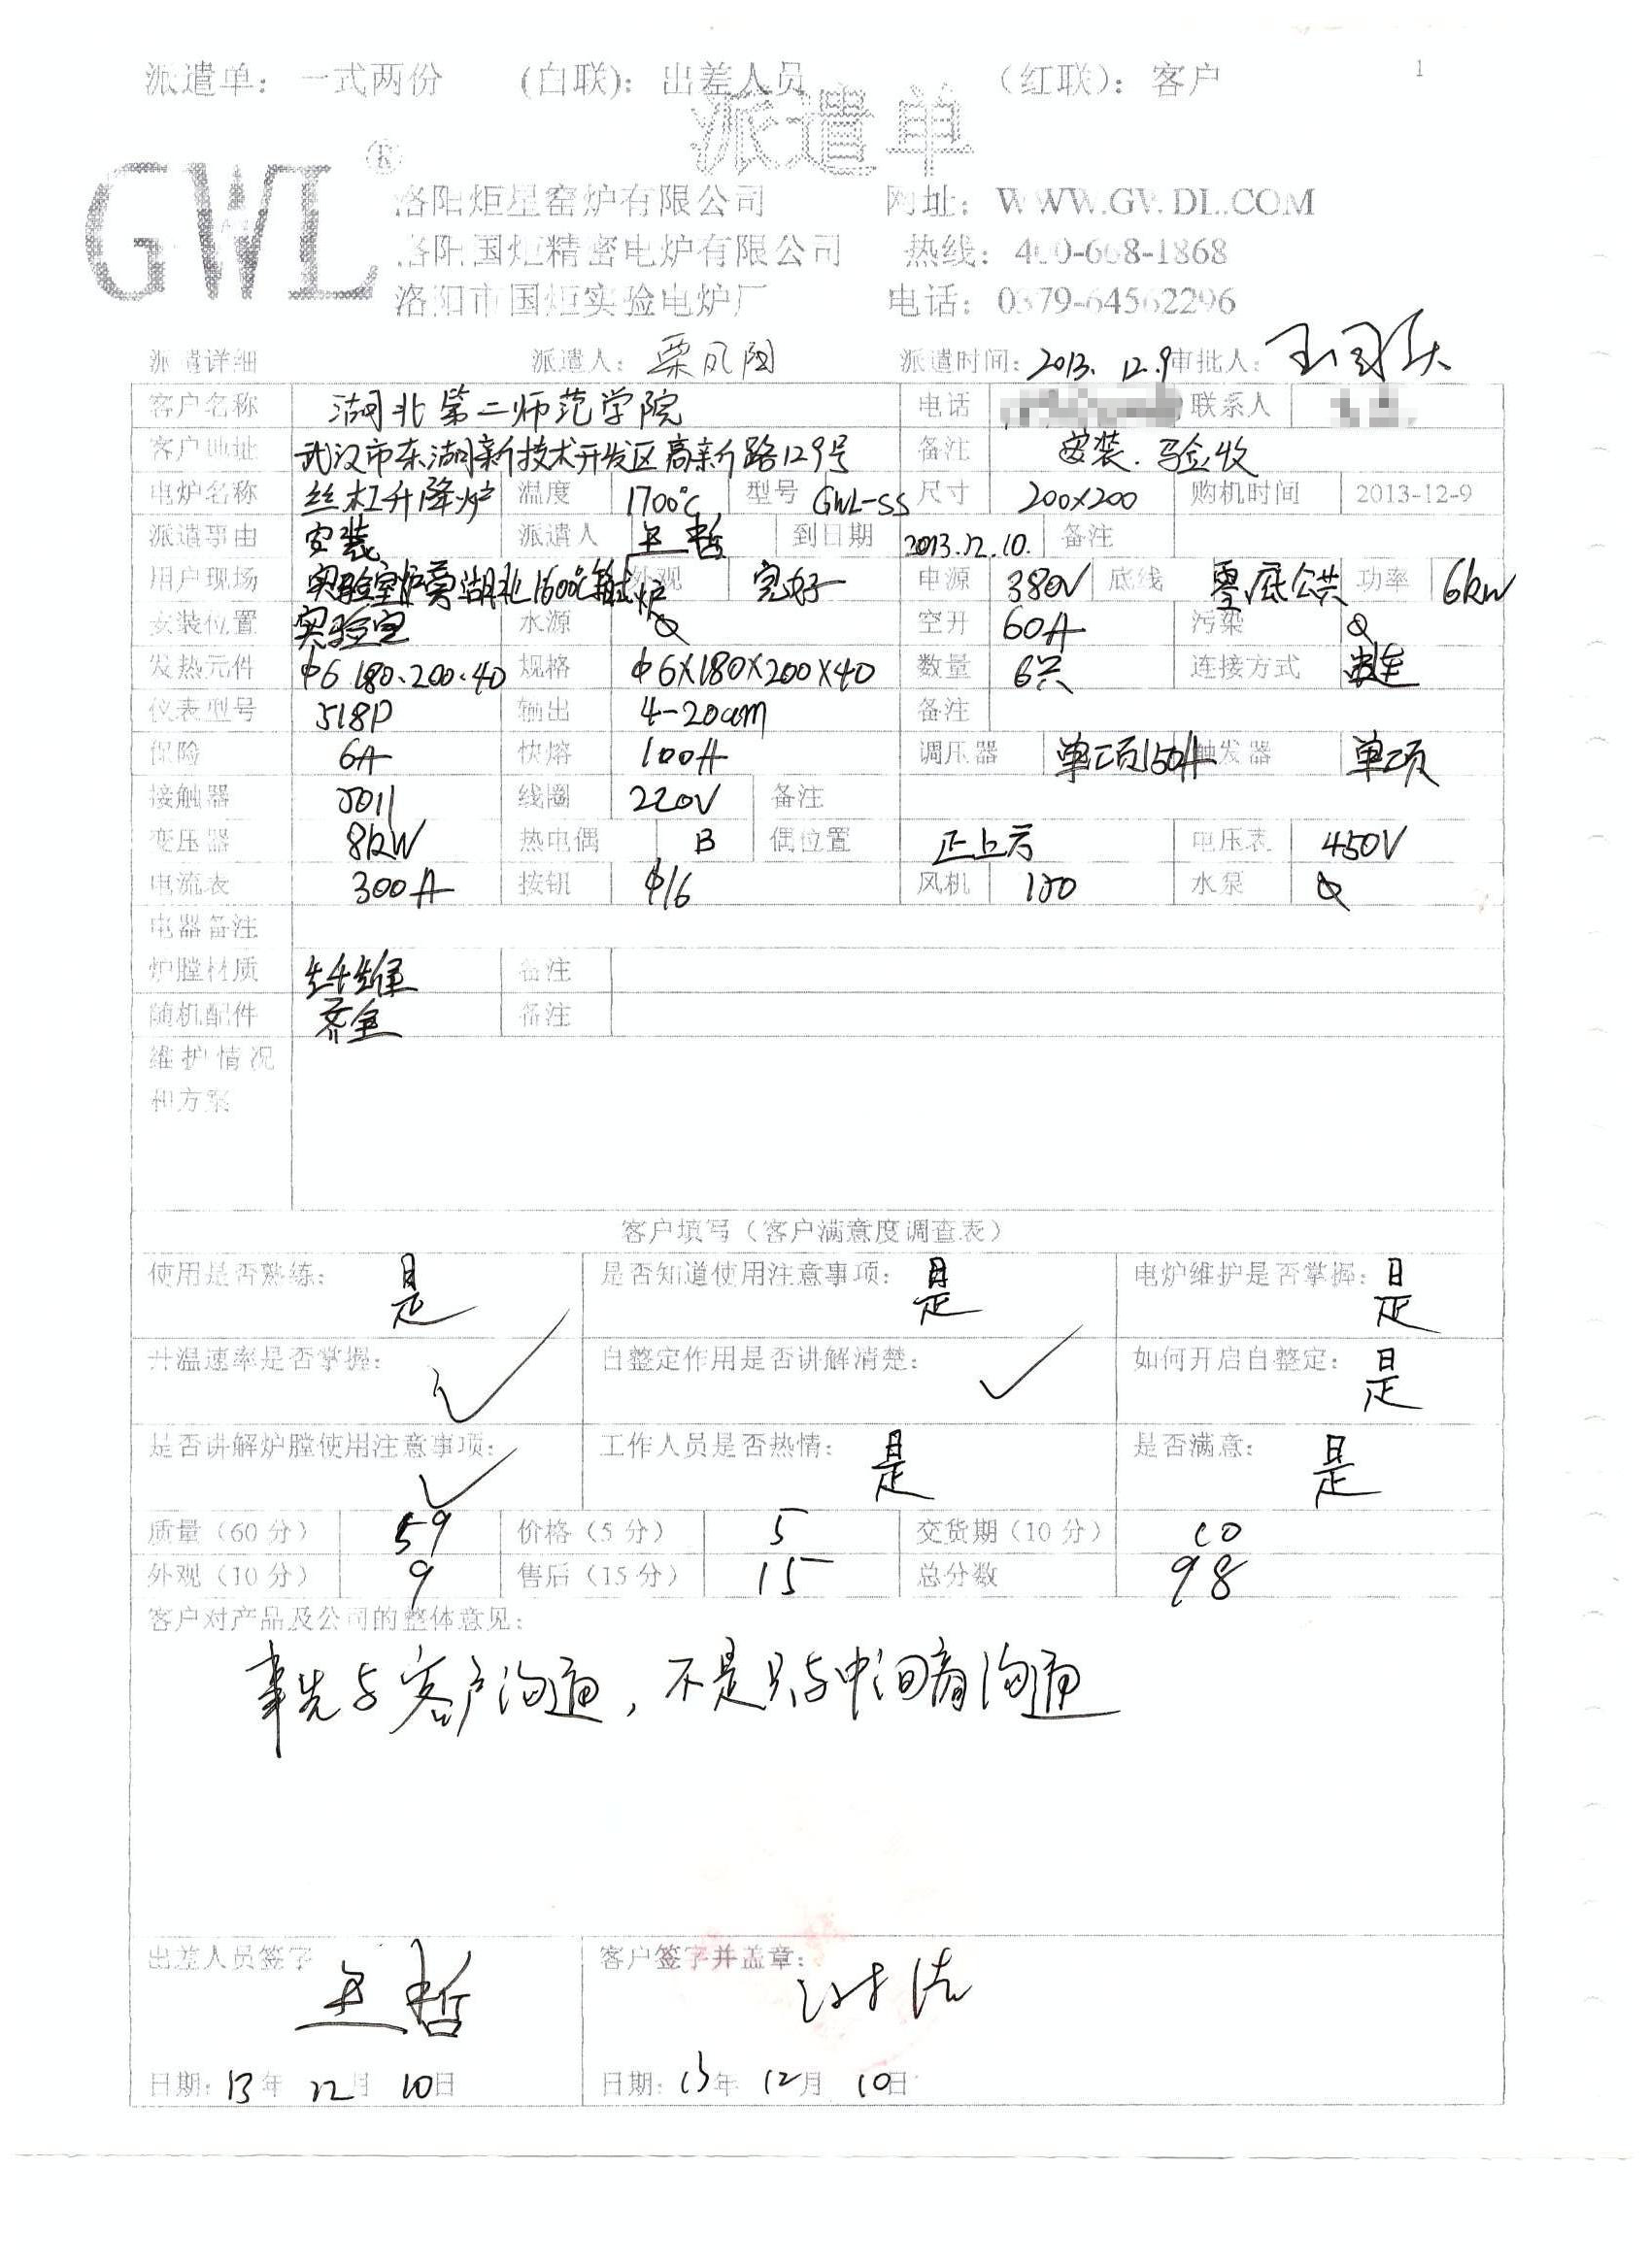 派遣单：一式两份 （白联）：出差人员 （红联）：客户 1
派遣单
GWL®
洛阳炬星窑炉有限公司 网址：WWW.GWDL.COM
洛阳国炬精密电炉有限公司 热线：400-668-1868
洛阳市国炬实验电炉厂 电话：0379-64562296
派遣详细 派遣人：栗凤阁 派遣时间：2013.12.9 审批人：
客户名称 湖北第二师范学院 电话 联系人
客户地址 武汉市东湖新技术开发区高新路129号 备注 安装.验收
电炉名称 丝杠升降炉 温度 1700℃ 型号 GWL-SS 尺寸 200×200 购机时间 2013-12-9
派遣事由 安装 派遣人 王哲 到日期 2013.12.10. 备注
用户现场 实验室炉旁湖北1600℃箱式炉 外观 完好 电源 380V 底线 零底公共 功率 6kW
安装位置 实验室 水源 空开 60A 污染
发热元件 φ6.180.200.40 规格 φ6×180×200×40 数量 6只 连接方式 串连
仪表型号 518P 输出 4-20am 备注
保险 6A 快熔 100A 调压器 单项150A 触发器 单项
接触器 5011 线圈 220V 备注
变压器 8kW 热电偶 B 偶位置 正上方 电压表 450V
电流表 300A 按钮 φ16 风机 150 水泵
电器备注
炉膛材质 纤维 备注
随机配件 齐全 备注
维护情况
和方案
客户填写（客户满意度调查表）
使用是否熟练：是 是否知道使用注意事项：是 电炉维护是否掌握：是
升温速率是否掌握：✓ 自整定作用是否讲解清楚：✓ 如何开启自整定：是
是否讲解炉膛使用注意事项：✓ 工作人员是否热情：是 是否满意：是
质量（60分） 59 价格（5分） 5 交货期（10分） 10
外观（10分） 9 售后（15分） 15 总分数 98
客户对产品及公司的整体意见：
事先与客户沟通，不是只与中间商沟通
出差人员签字 王哲 客户签字并盖章：
日期：13年 12月 10日 日期：13年 12月 10日